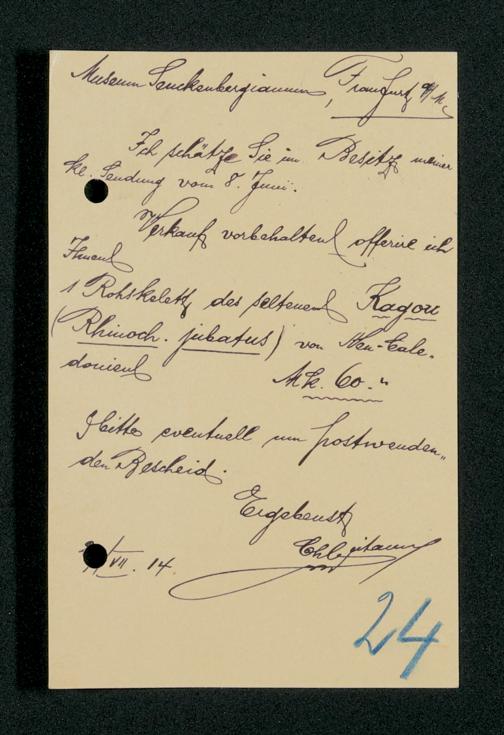 Museum Senckenbergianum, Frankfurt a/M.
Ich schätze Sie im Besitz meiner
kl. Sendung vom 8. Juni.
Verkauf vorbehalten offerire ich
Ihnen
1 Rohskelett des seltenen Kagou
(Rhinoch. jubatus) von Neu-Cale-
donien Mk. 60."
Bitte eventuell um postwenden-
den Bescheid.
Ergebenst
VII. 14.
24